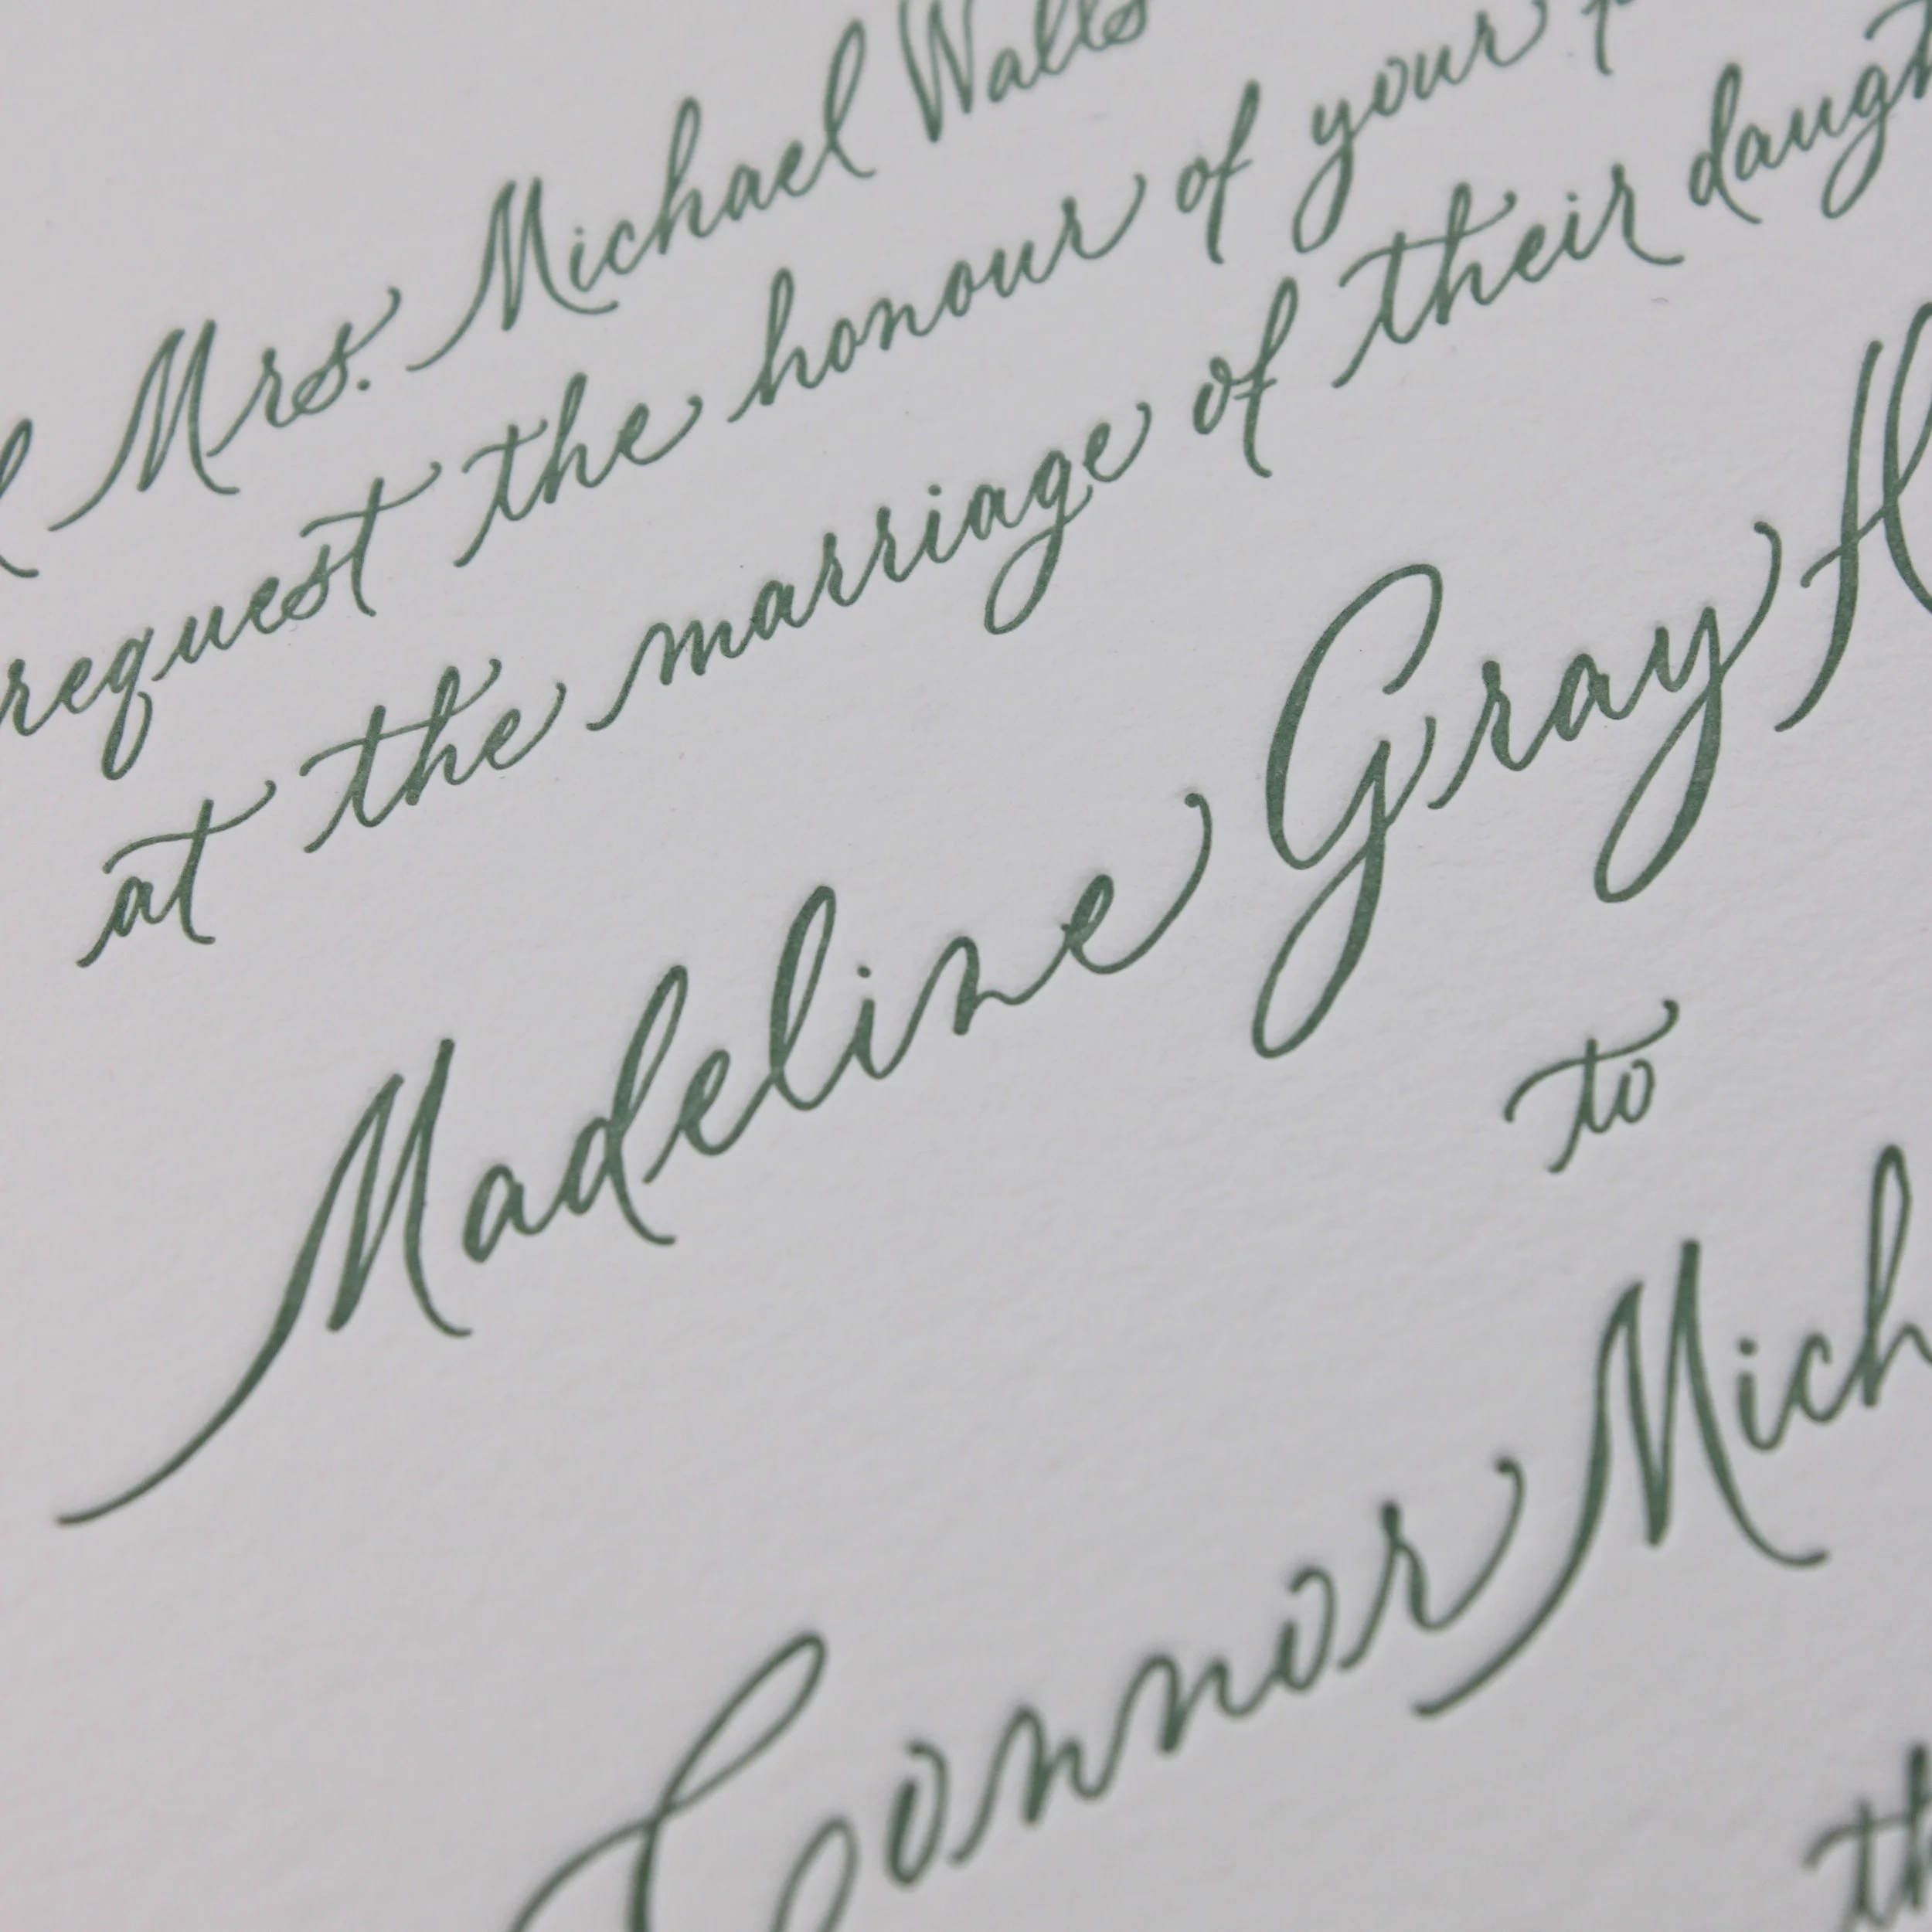 Mrs. Michael Walls
request the honour of your
at the marriage of their
Madeline Gray
to
Connor